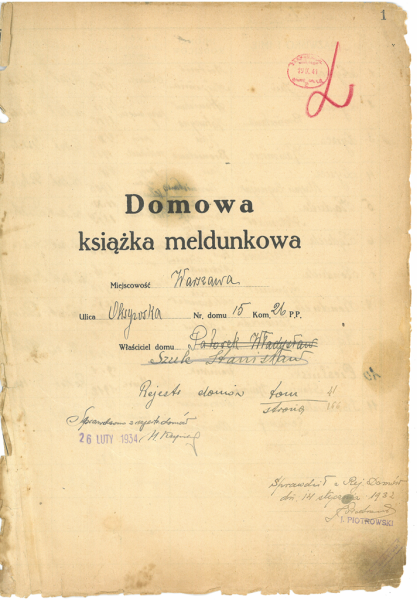 1
Domowa
książka meldunkowa
Miejscowość Warszawa
Ulica Nr. domu 15 Kom. 26 P.P.
Właściciel domu Władysław
Szuk Stanisław
Rejestr domów tom
strona
26 LUTY 1934
Sprawdził z Rej. Domów
dn. 14 stycznia 1932
J. PIOTROWSKI